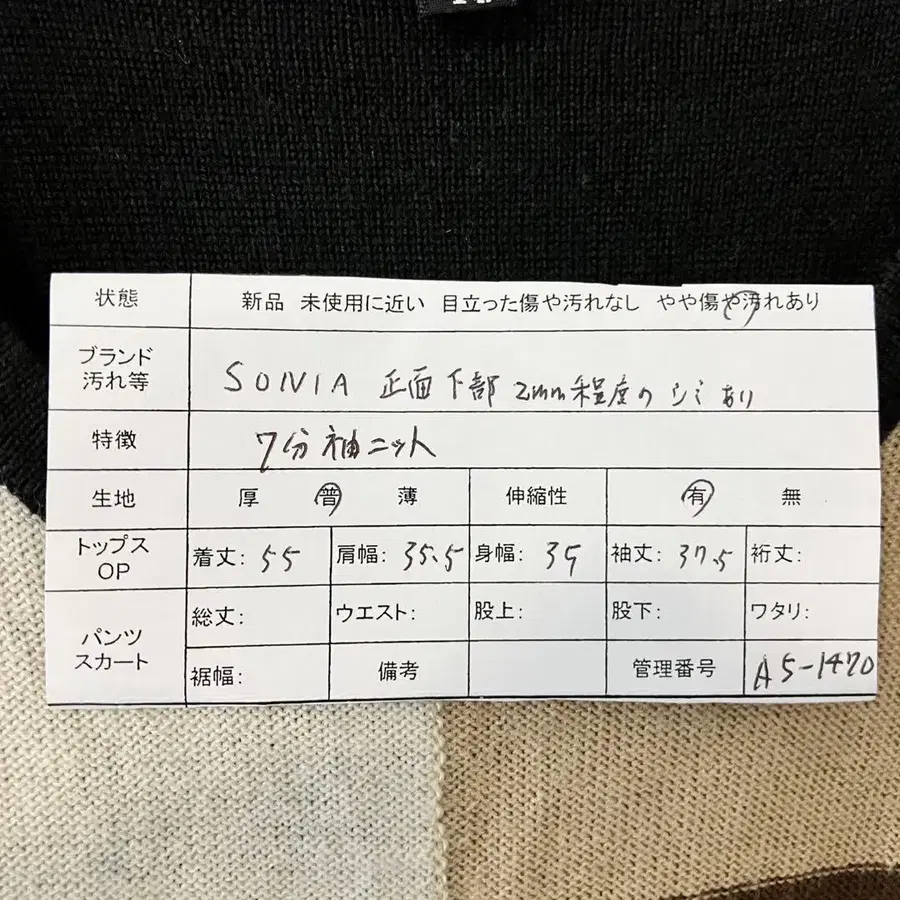 状態 新品 未使用に近い 目立った傷や汚れなし やや傷や汚れあり
ブランド
汚れ等
SONIA 正面下部 2mm程度のシミあり
特徴 7分袖ニット
生地 厚 普 薄 伸縮性 有 無
トップス
OP
着丈: 55 肩幅: 35.5 身幅: 39 袖丈: 37.5 裄丈:
パンツ
スカート
総丈: ウエスト: 股上: 股下: ワタリ:
裾幅: 備考 管理番号 A5-1470